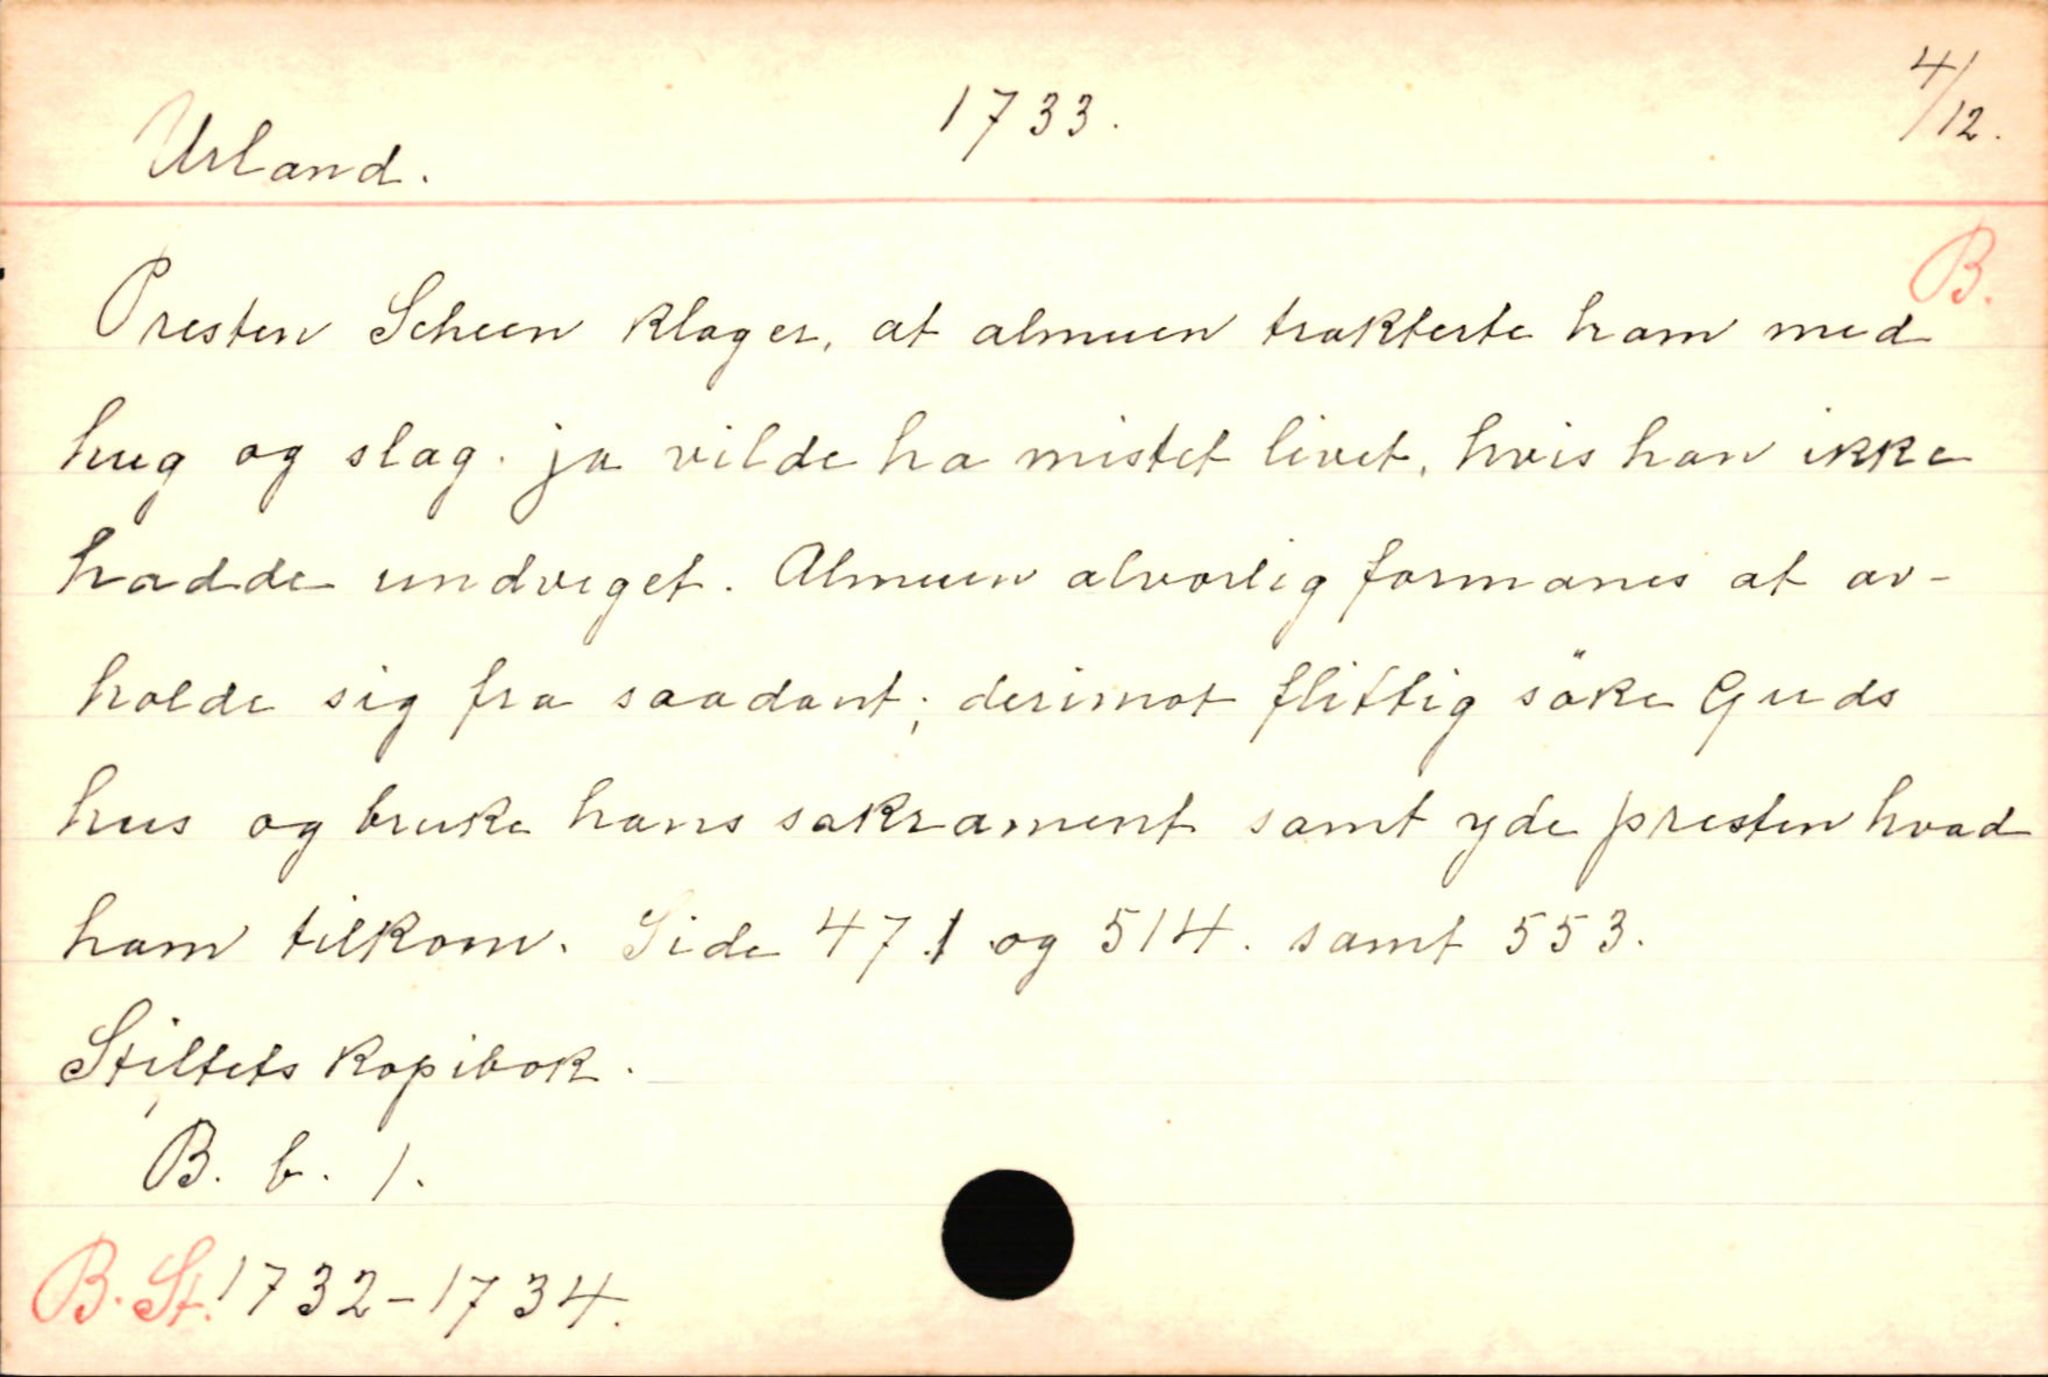 Urland. 1733. 4/12.
B.
Presten Scheen klager, at almuen trakterte ham med
hug og slag. ja vilde ha mistet livet, hvis han ikke
hadde undveget. Almuen alvorlig formanes at av-
holde sig fra saadant; derimot flittig söke Guds
hus og bruke hans sakrament samt yde presten hvad
ham tilkom. Side 471 og 514. samt 553.
Stiftets Kopibok.
B. b. 1.
B. St. 1732-1734.